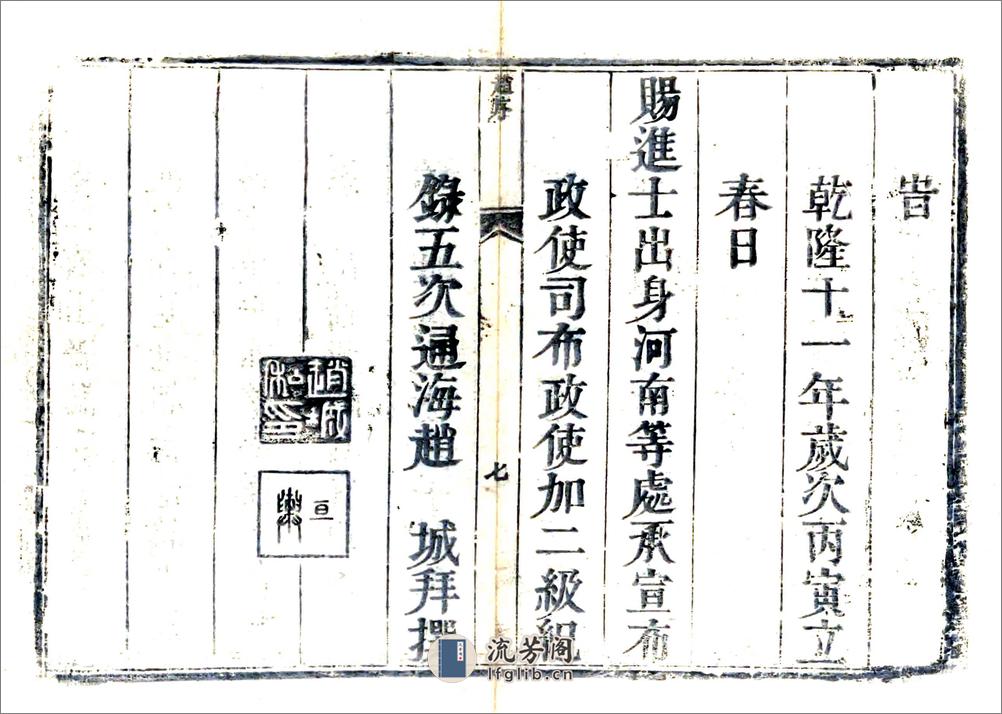 旹
乾隆十一年歲次丙寅立
春日
賜進士出身河南等處承宣布
政使司布政使加二級紀
錄五次通海趙 城拜撰
趙序
七
趙城
和印
流芳阁
lfglib.cn